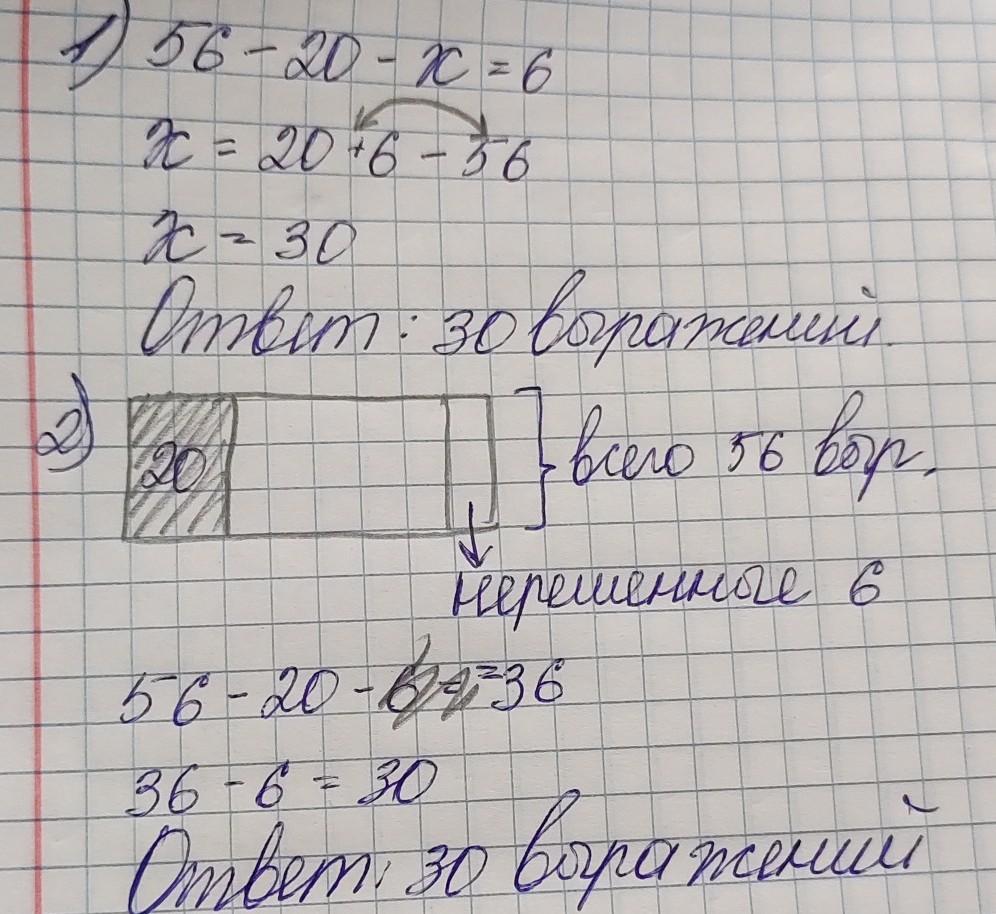 1) 56 - 20 - x = 6
x = 20 + 6 - 56
x = 30
Ответ: 30 выражений.
2) 20
всего 56 выр.
нерешенные 6
56 - 20 - = 36
36 - 6 = 30
Ответ: 30 выражений